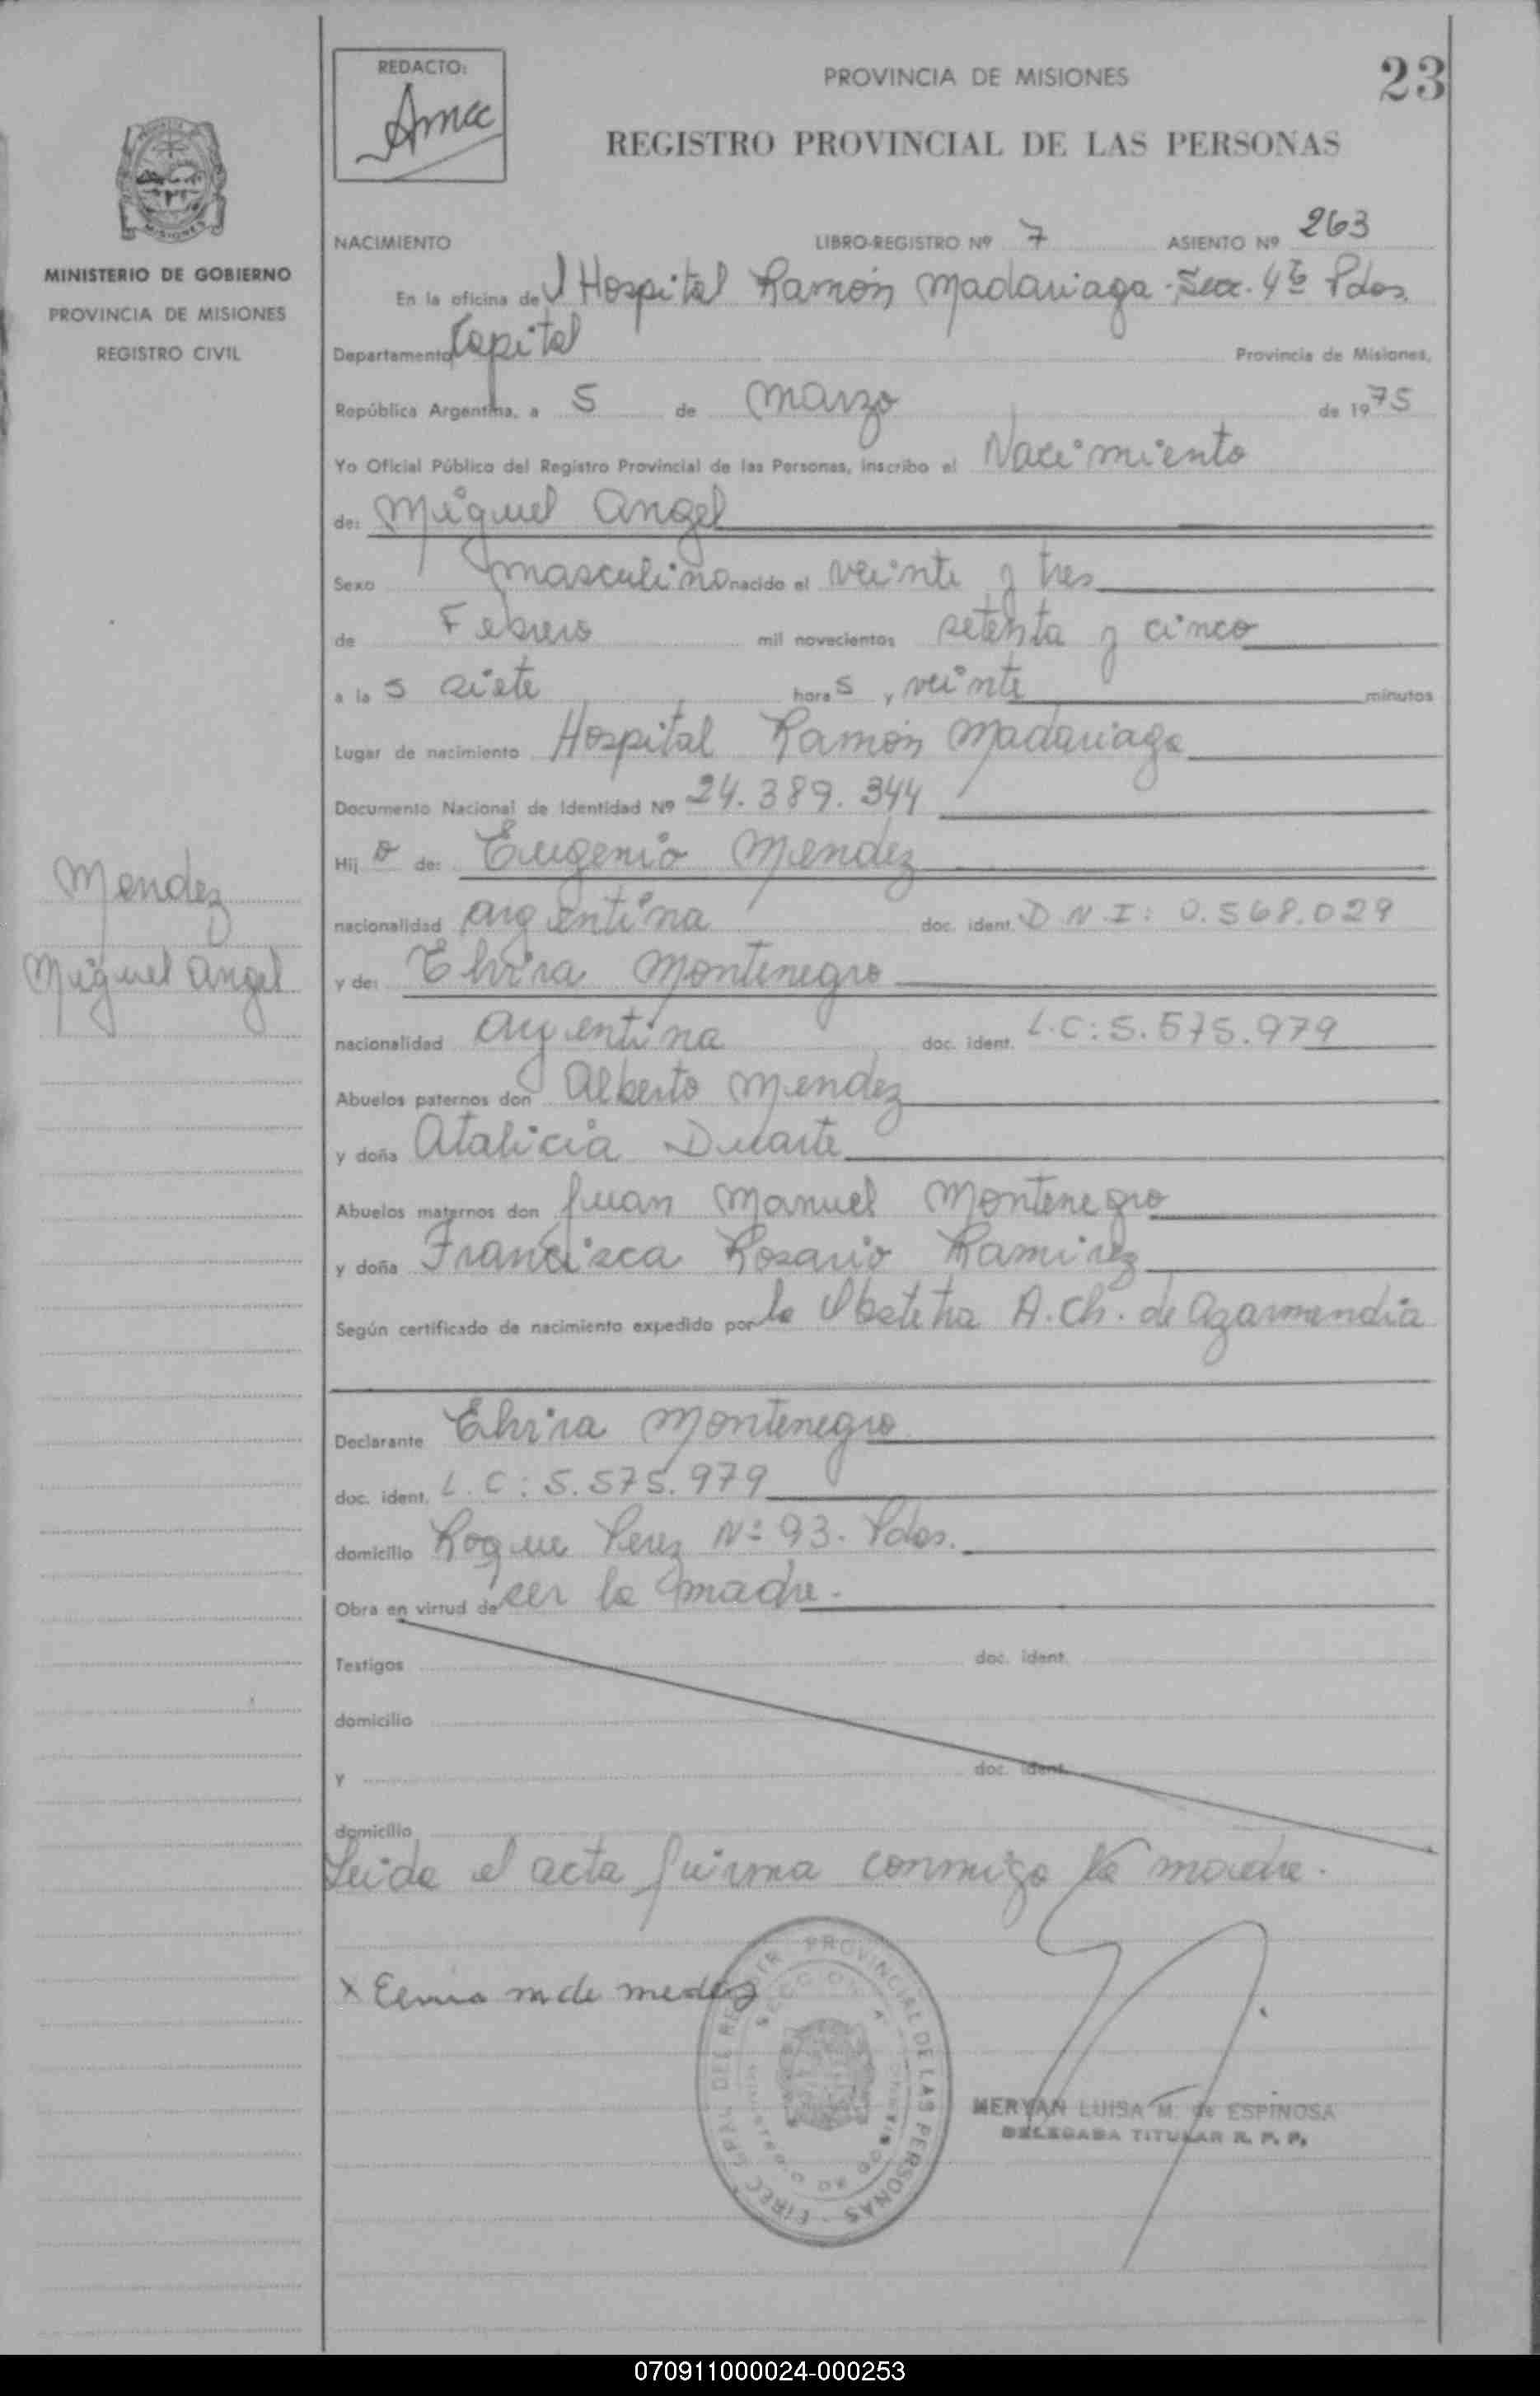 REDACTO:
PROVINCIA DE MISIONES
23
REGISTRO PROVINCIAL DE LAS PERSONAS
MISIONES
MINISTERIO DE GOBIERNO
PROVINCIA DE MISIONES
REGISTRO CIVIL
NACIMIENTO LIBRO-REGISTRO Nº 7 ASIENTO Nº 263
En la oficina del Hospital Ramón Madariaga - Secc. 4ta Pdas.
Departamento Capital Provincia de Misiones,
República Argentina, a 5 de Marzo de 1975
Yo Oficial Público del Registro Provincial de las Personas, inscribo el Nacimiento
de: Miguel Angel
Sexo masculino nacido el veinte y tres
de Febrero mil novecientos setenta y cinco
a las siete horas y veinte minutos
Lugar de nacimiento Hospital Ramón Madariaga
Documento Nacional de Identidad Nº 24.389.344
Hijo de: Eugenio Mendez
nacionalidad argentina doc. ident. D.N.I: 0.568.029
y de: Elvira Montenegro
nacionalidad argentina doc. ident. L.C: 5.575.979
Abuelos paternos don Alberto Mendez
y doña Atalicia Duarte
Abuelos maternos don Juan Manuel Montenegro
y doña Francisca Rosario Ramirez
Según certificado de nacimiento expedido por la Obstetra A. Ch. de Azarmendia
Mendez
Miguel Angel
Declarante Elvira Montenegro
doc. ident. L.C: 5.575.979
domicilio Roque Perez Nº 93. Pdas.
Obra en virtud de ser la madre.
Testigos doc. ident.
domicilio
y doc. ident.
domicilio
Leida el acta firma conmigo la madre.
x m de
PROVINCIAL DE LAS PERSONAS
MERYAN LUISA M. de ESPINOSA
DELEGADA TITULAR R. P. P.
070911000024-000253